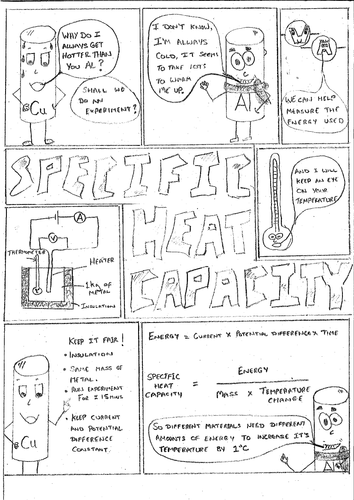 WHY DO I
ALWAYS GET
HOTTER THAN
YOU AL?
SHALL WE
DO AN
EXPERIMENT?
Cu
I DON'T KNOW,
I'M ALWAYS
COLD, IT SEEMS
TO TAKE
TO WARM
ME UP.
Al
A
WE CAN HELP
MEASURE THE
ENERGY USED
SPECIFIC
HEAT
CAPACITY
AND I WILL
KEEP AN EYE
ON YOUR
TEMPERATURE
A
V
THERMOMETER
HEATER
1KG OF
METAL
INSULATION
KEEP IT FAIR!
• INSULATION
• SAME MASS OF
METAL.
• RUN EXPERIMENT
FOR 15MINS
• KEEP CURRENT
AND POTENTIAL
DIFFERENCE
CONSTANT.
Cu
ENERGY = CURRENT x POTENTIAL DIFFERENCE x TIME
SPECIFIC
HEAT
CAPACITY
=
ENERGY
MASS x TEMPERATURE
CHANGE
SO DIFFERENT MATERIALS NEED DIFFERENT
AMOUNTS OF ENERGY TO INCREASE IT'S
TEMPERATURE BY 1°C
Al